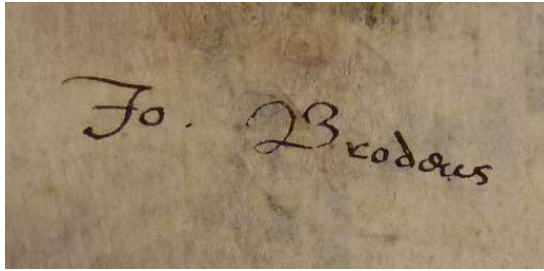 Jo. Brodæus